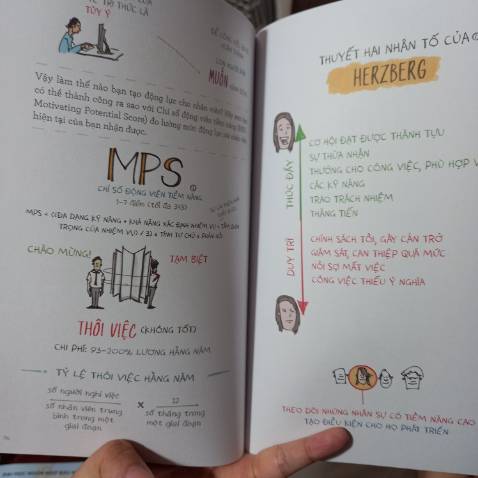 TRI THỨC LÀ
TÙY Ý
MUỐN
Vậy làm thế nào bạn tạo động lực cho nhân viên?
có thể thành công ra sao với Chỉ số động viên tiềm năng
Motivating Potential Score) đo lường mức động lực
hiện tại của bạn nhận được.
MPS
CHỈ SỐ ĐỘNG VIÊN TIỀM NĂNG
1-7 ĐIỂM (TỐI ĐA 343)
MPS = ((ĐA DẠNG KỸ NĂNG + KHẢ NĂNG XÁC ĐỊNH NHIỆM VỤ + TẦM QUAN
TRỌNG CỦA NHIỆM VỤ) / 3) × TÍNH TỰ CHỦ × PHẢN HỒI
CHÀO MỪNG!
TẠM BIỆT
THÔI VIỆC (KHÔNG TỐT)
CHI PHÍ: 93-200% LƯƠNG HẰNG NĂM
TỶ LỆ THÔI VIỆC HẰNG NĂM
số người nghỉ việc
số nhân viên trung
bình trong một
giai đoạn
×
12
số tháng trong
một giai đoạn
THUYẾT HAI NHÂN TỐ CỦA
HERZBERG
THÚC ĐẨY
CƠ HỘI ĐẠT ĐƯỢC THÀNH TỰU
SỰ THỪA NHẬN
THƯỞNG CHO CÔNG VIỆC, PHÙ HỢP V
CÁC KỸ NĂNG
TRAO TRÁCH NHIỆM
THĂNG TIẾN
DUY TRÌ
CHÍNH SÁCH TỒI, GÂY CẢN TRỞ
GIÁM SÁT, CAN THIỆP QUÁ MỨC
NỖI SỢ MẤT VIỆC
CÔNG VIỆC THIẾU Ý NGHĨA
THEO DÕI NHỮNG NHÂN SỰ CÓ TIỀM NĂNG CAO
TẠO ĐIỀU KIỆN CHO HỌ PHÁT TRIỂN